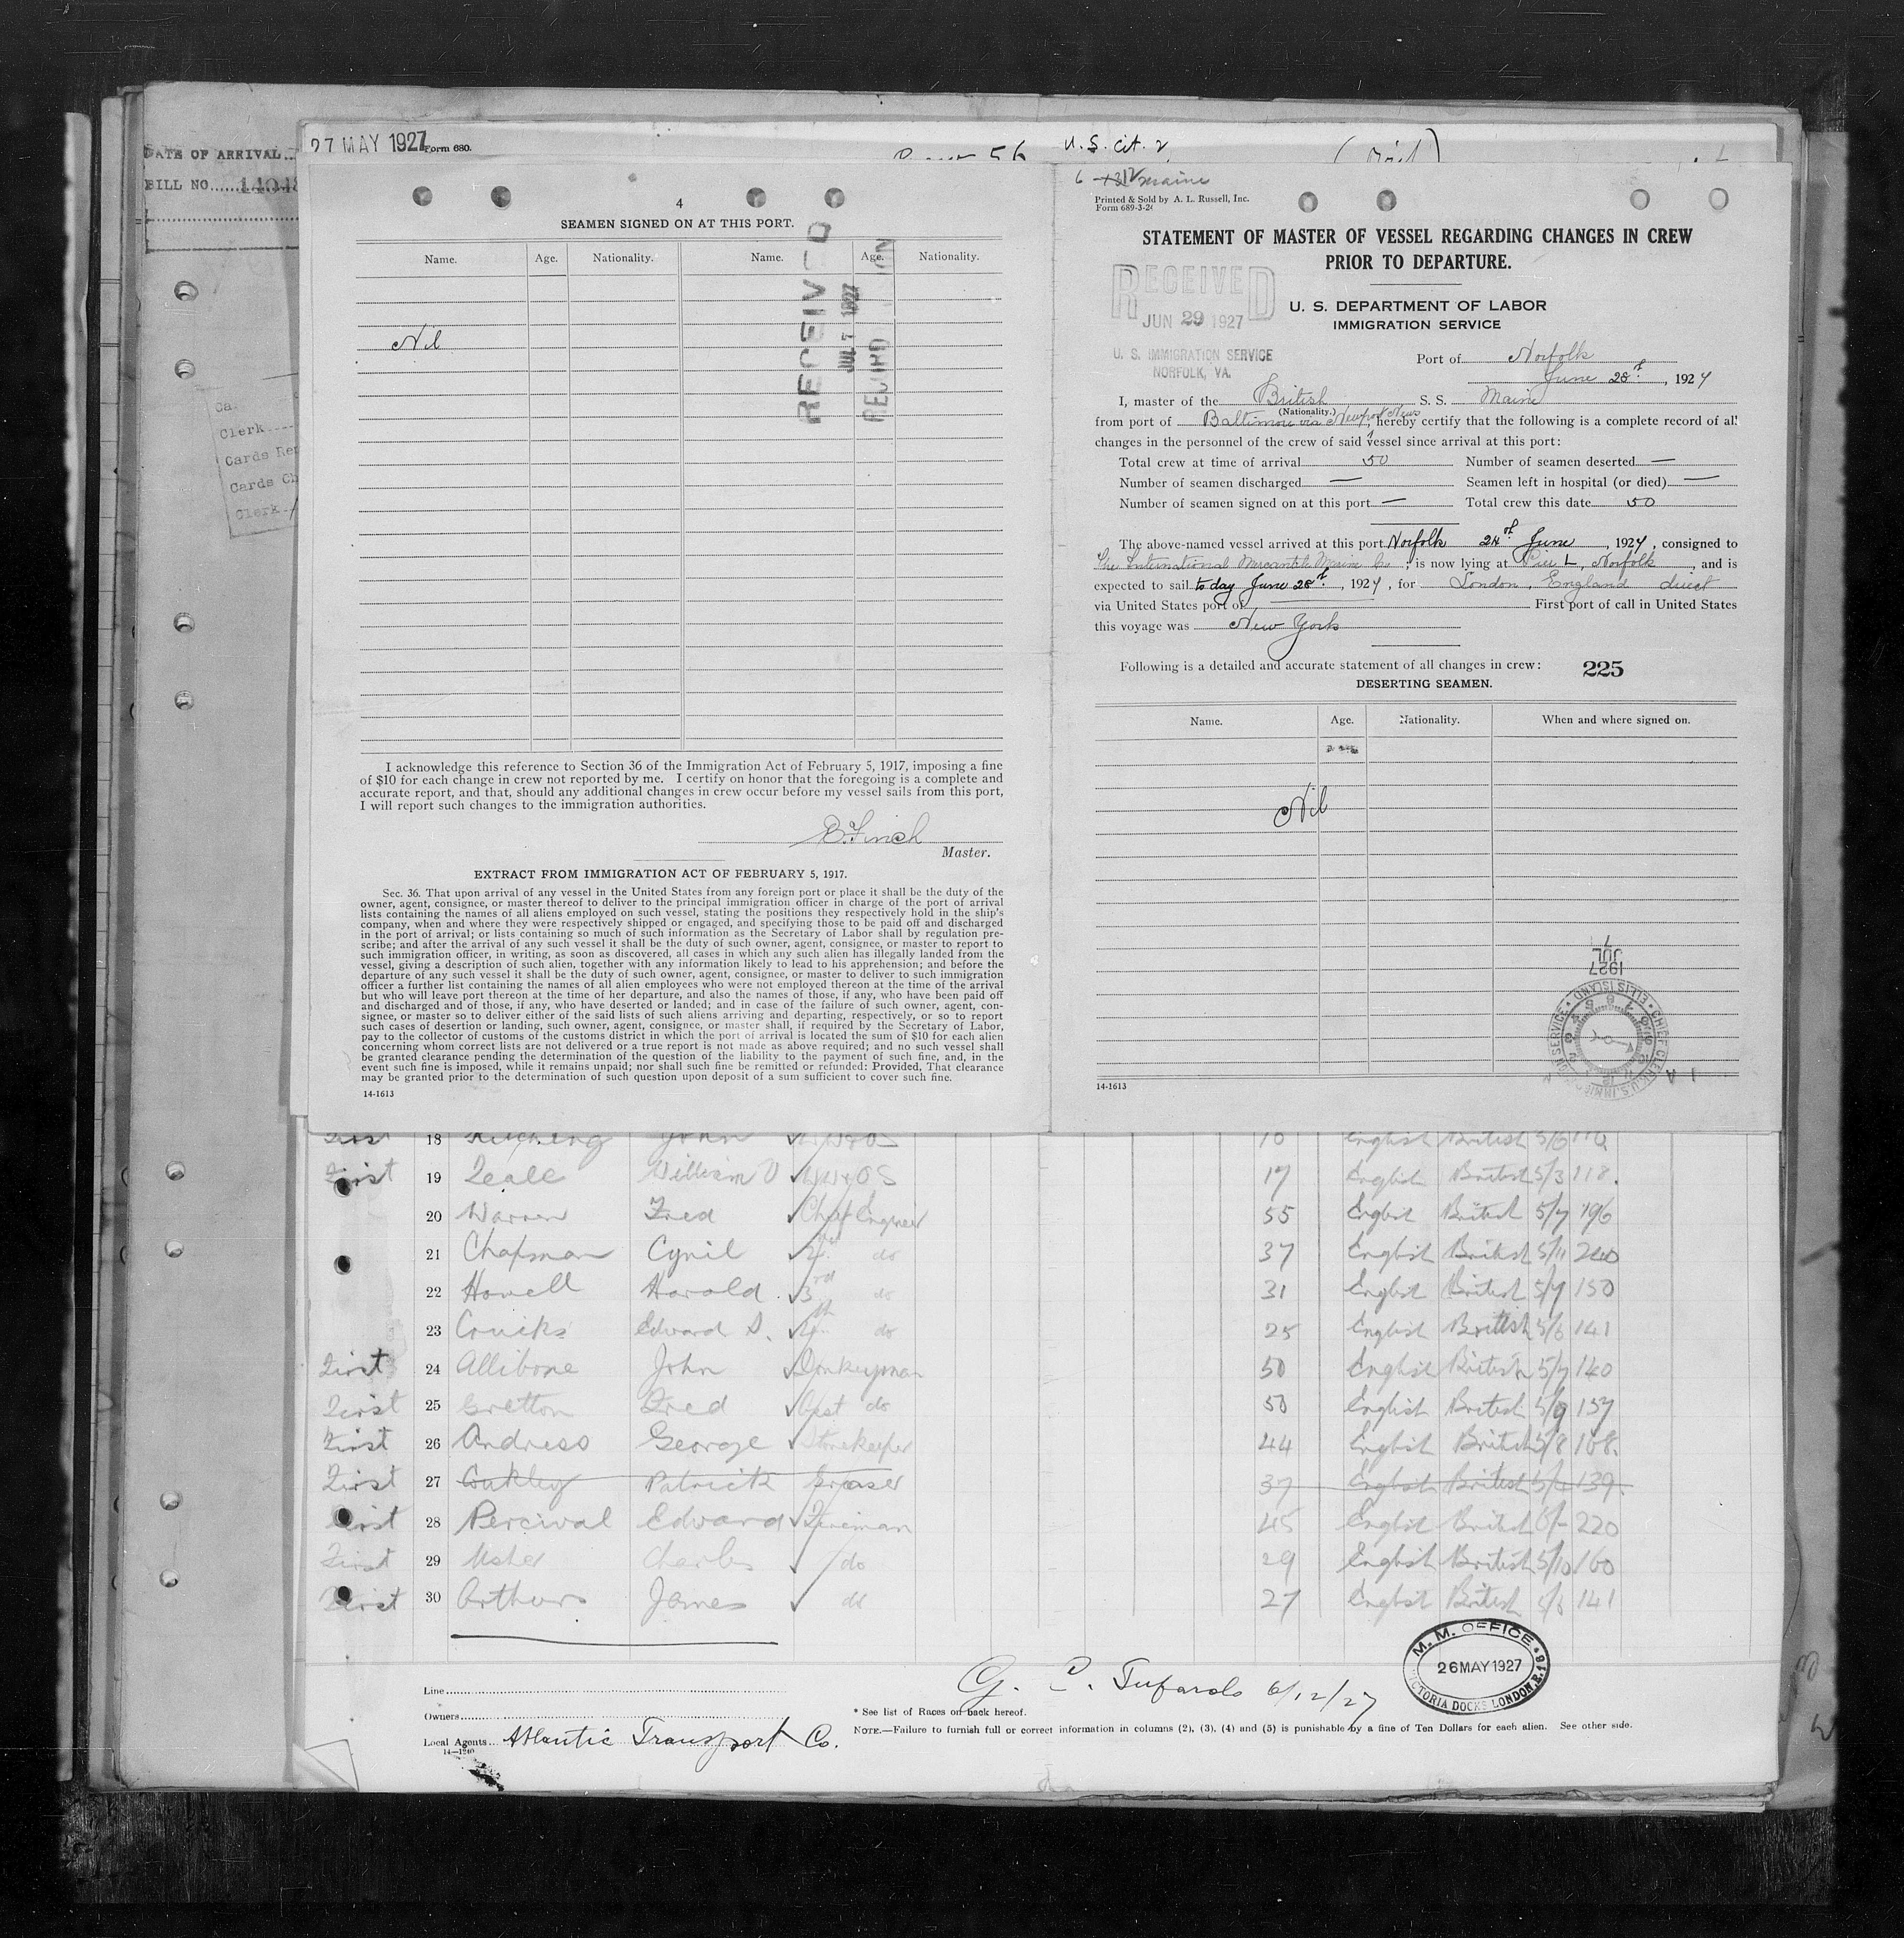 27 MAY 1927
Form 680.
U. S. Cit. 2
DATE OF ARRIVAL
BILL NO.
Clerk
Cards
Cards
Clerk
4
SEAMEN SIGNED ON AT THIS PORT.
Name. Age. Nationality. Name. Age. Nationality.
Nil
RECEIVED
JUL 7 1927
I acknowledge this reference to Section 36 of the Immigration Act of February 5, 1917, imposing a fine
of $10 for each change in crew not reported by me. I certify on honor that the foregoing is a complete and
accurate report, and that, should any additional changes in crew occur before my vessel sails from this port,
I will report such changes to the immigration authorities.
B. Finch
Master.
EXTRACT FROM IMMIGRATION ACT OF FEBRUARY 5, 1917.
Sec. 36. That upon arrival of any vessel in the United States from any foreign port or place it shall be the duty of the
owner, agent, consignee, or master thereof to deliver to the principal immigration officer in charge of the port of arrival
lists containing the names of all aliens employed on such vessel, stating the positions they respectively hold in the ship's
company, when and where they were respectively shipped or engaged, and specifying those to be paid off and discharged
in the port of arrival; or lists containing so much of such information as the Secretary of Labor shall by regulation pre-
scribe; and after the arrival of any such vessel it shall be the duty of such owner, agent, consignee, or master to report to
such immigration officer, in writing, as soon as discovered, all cases in which any such alien has illegally landed from the
vessel, giving a description of such alien, together with any information likely to lead to his apprehension; and before the
departure of any such vessel it shall be the duty of such owner, agent, consignee, or master to deliver to such immigration
officer a further list containing the names of all alien employees who were not employed thereon at the time of the arrival
but who will leave port thereon at the time of her departure, and also the names of those, if any, who have been paid off
and discharged and of those, if any, who have deserted or landed; and in case of the failure of such owner, agent, con-
signee, or master so to deliver either of the said lists of such aliens arriving and departing, respectively, or so to report
such cases of desertion or landing, such owner, agent, consignee, or master shall, if required by the Secretary of Labor,
pay to the collector of customs of the customs district in which the port of arrival is located the sum of $10 for each alien
concerning whom correct lists are not delivered or a true report is not made as above required; and no such vessel shall
be granted clearance pending the determination of the question of the liability to the payment of such fine, and, in the
event such fine is imposed, while it remains unpaid; nor shall such fine be remitted or refunded: Provided, That clearance
may be granted prior to the determination of such question upon deposit of a sum sufficient to cover such fine.
14-1613
Maine
Printed & Sold by A. L. Russell, Inc.
Form 689-3-26
STATEMENT OF MASTER OF VESSEL REGARDING CHANGES IN CREW
PRIOR TO DEPARTURE.
RECEIVED
JUN 29 1927
U. S. IMMIGRATION SERVICE
NORFOLK, VA.
U. S. DEPARTMENT OF LABOR
IMMIGRATION SERVICE
Port of Norfolk
June 28th, 1927
I, master of the British S. S. Maine
(Nationality.)
from port of Baltimore via Newport News, hereby certify that the following is a complete record of all
changes in the personnel of the crew of said vessel since arrival at this port:
Total crew at time of arrival 50 Number of seamen deserted —
Number of seamen discharged — Seamen left in hospital (or died) —
Number of seamen signed on at this port — Total crew this date 50
The above-named vessel arrived at this port Norfolk 24th June, 1927, consigned to
The International Mercantile Marine Co.; is now lying at Pier L, Norfolk, and is
expected to sail to day June 28th, 1927, for London, England direct
via United States port of First port of call in United States
this voyage was New York
Following is a detailed and accurate statement of all changes in crew: 225
DESERTING SEAMEN.
Name. Age. Nationality. When and where signed on.
Nil
1927
JUL
7
CHIEF CLERK, U.S. IMMIGRATION SERVICE • ELLIS ISLAND
14-1613
First 18 John English British 5/6
First 19 William 17 English British 5/3 118.
20 Warren Fred Chief Engineer 55 English British 5/7 196
21 Chapman Cyril 2nd do 37 English British 5/11 240
22 Howell Harold 3rd do 31 English British 5/9 150
23 Edward D. 4th do 25 English British 5/6 141
First 24 Allibone John Donkeyman 50 English British 5/7 140
First 25 Gretton Fred Asst do 50 English British 5/9 157
First 26 Andress George Storekeeper 44 English British 5/8 168.
First 27 Patrick Greaser 37 English British 139.
First 28 Percival Edward Fireman 45 English British 6/- 220
First 29 Usher Charles do 29 English British 5/10 160
First 30 Arthurs James do 27 English British 5/6 141
Line
Owners
Local Agents Atlantic Transport Co.
14—1240
6/12/27
* See list of Races on back hereof.
NOTE.—Failure to furnish full or correct information in columns (2), (3), (4) and (5) is punishable by a fine of Ten Dollars for each alien. See other side.
M. M. OFFICE
26 MAY 1927
VICTORIA DOCKS LONDON, E.16